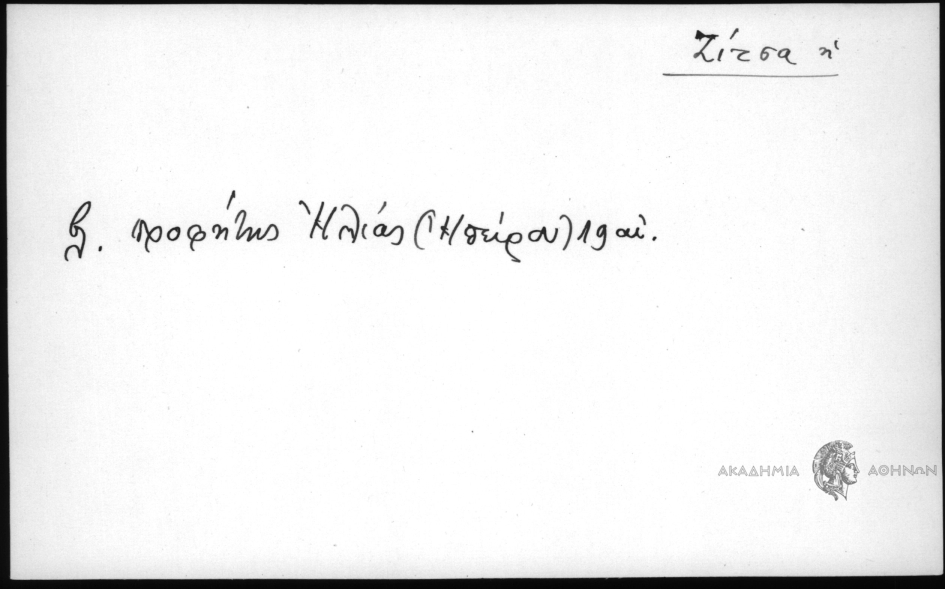 Ζίτσα ἡ
βλ. προφήτης Ἠλίας (Ἠπείρου) 19 αἰ.
ΑΚΑΔΗΜΙΑ ΑΘΗΝΩΝ